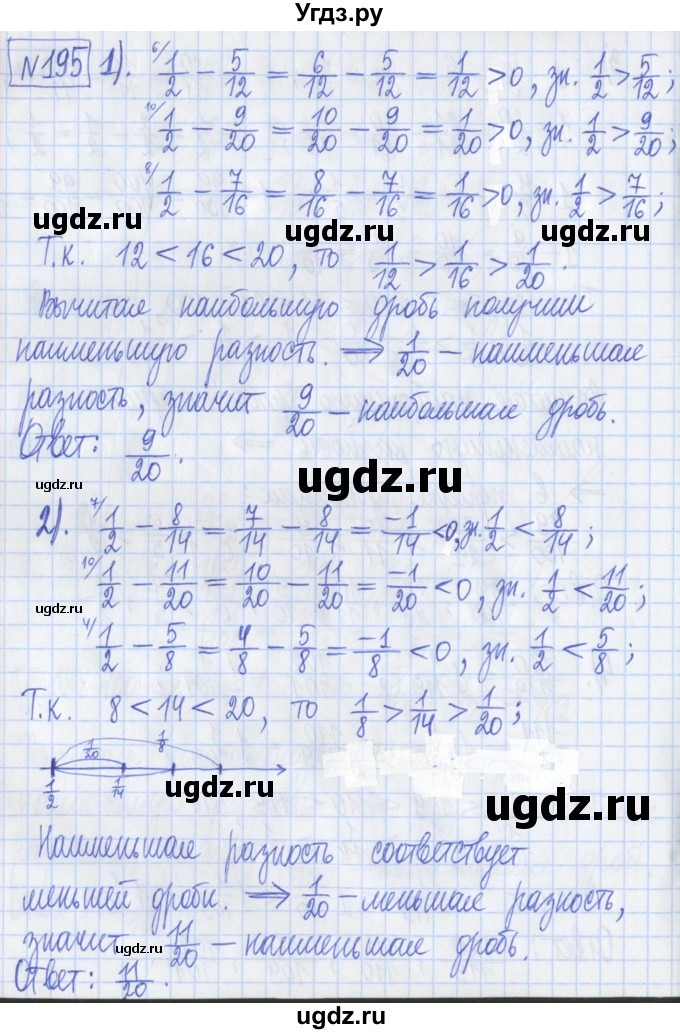 Угдз.ру
№195 1). ⁶⁄ 1/2 − 5/12 = 6/12 − 5/12 = 1/12 > 0, зн. 1/2 > 5/12;
¹⁰⁄ 1/2 − 9/20 = 10/20 − 9/20 = 1/20 > 0, зн. 1/2 > 9/20;
⁸⁄ 1/2 − 7/16 = 8/16 − 7/16 = 1/16 > 0, зн. 1/2 > 7/16;
ugdz.ru ugdz.ru ugdz.ru
Т.к. 12 < 16 < 20, то 1/12 > 1/16 > 1/20.
Вычитая наибольшую дробь получим
наименьшую разность. ⟹ 1/20 – наименьшая
разность, значит 9/20 – наибольшая дробь.
Ответ: 9/20.
ugdz.ru ugdz.ru
2). ⁷⁄ 1/2 − 8/14 = 7/14 − 8/14 = −1/14 < 0, зн. 1/2 < 8/14;
¹⁰⁄ 1/2 − 11/20 = 10/20 − 11/20 = −1/20 < 0, зн. 1/2 < 11/20;
ugdz.ru ugdz.ru
⁴⁄ 1/2 − 5/8 = 4/8 − 5/8 = −1/8 < 0, зн. 1/2 < 5/8;
Т.к. 8 < 14 < 20, то 1/8 > 1/14 > 1/20;
ugdz.ru
1/20 1/8
1/2 1/14
ugdz.ru
ugdz.ru
Наименьшая разность соответствует
меньшей дроби. ⟹ 1/20 – меньшая разность,
значит 11/20 – наименьшая дробь.
ugdz.ru
Ответ: 11/20.
ugdz.ru